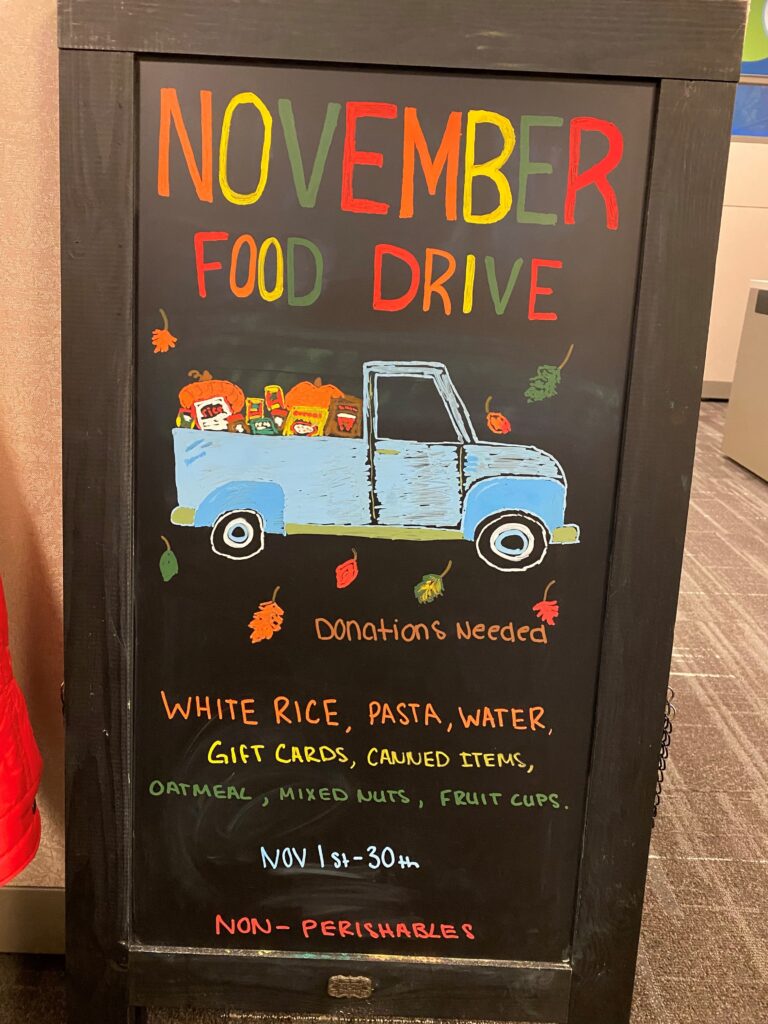 NOVEMBER
FOOD DRIVE
RICE
Donations Needed
WHITE RICE, PASTA, WATER,
GIFT CARDS, CANNED ITEMS,
OATMEAL, MIXED NUTS, FRUIT CUPS.
NOV 1st-30th
NON-PERISHABLES